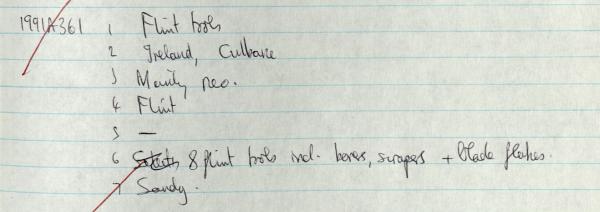 1991A361 1 Flint tools
2 Ireland, Culbane
3 Mainly neo.
4 Flint
5 —
6 8 flint tools incl. borers, scrapers + blade flakes.
7 Sandy.